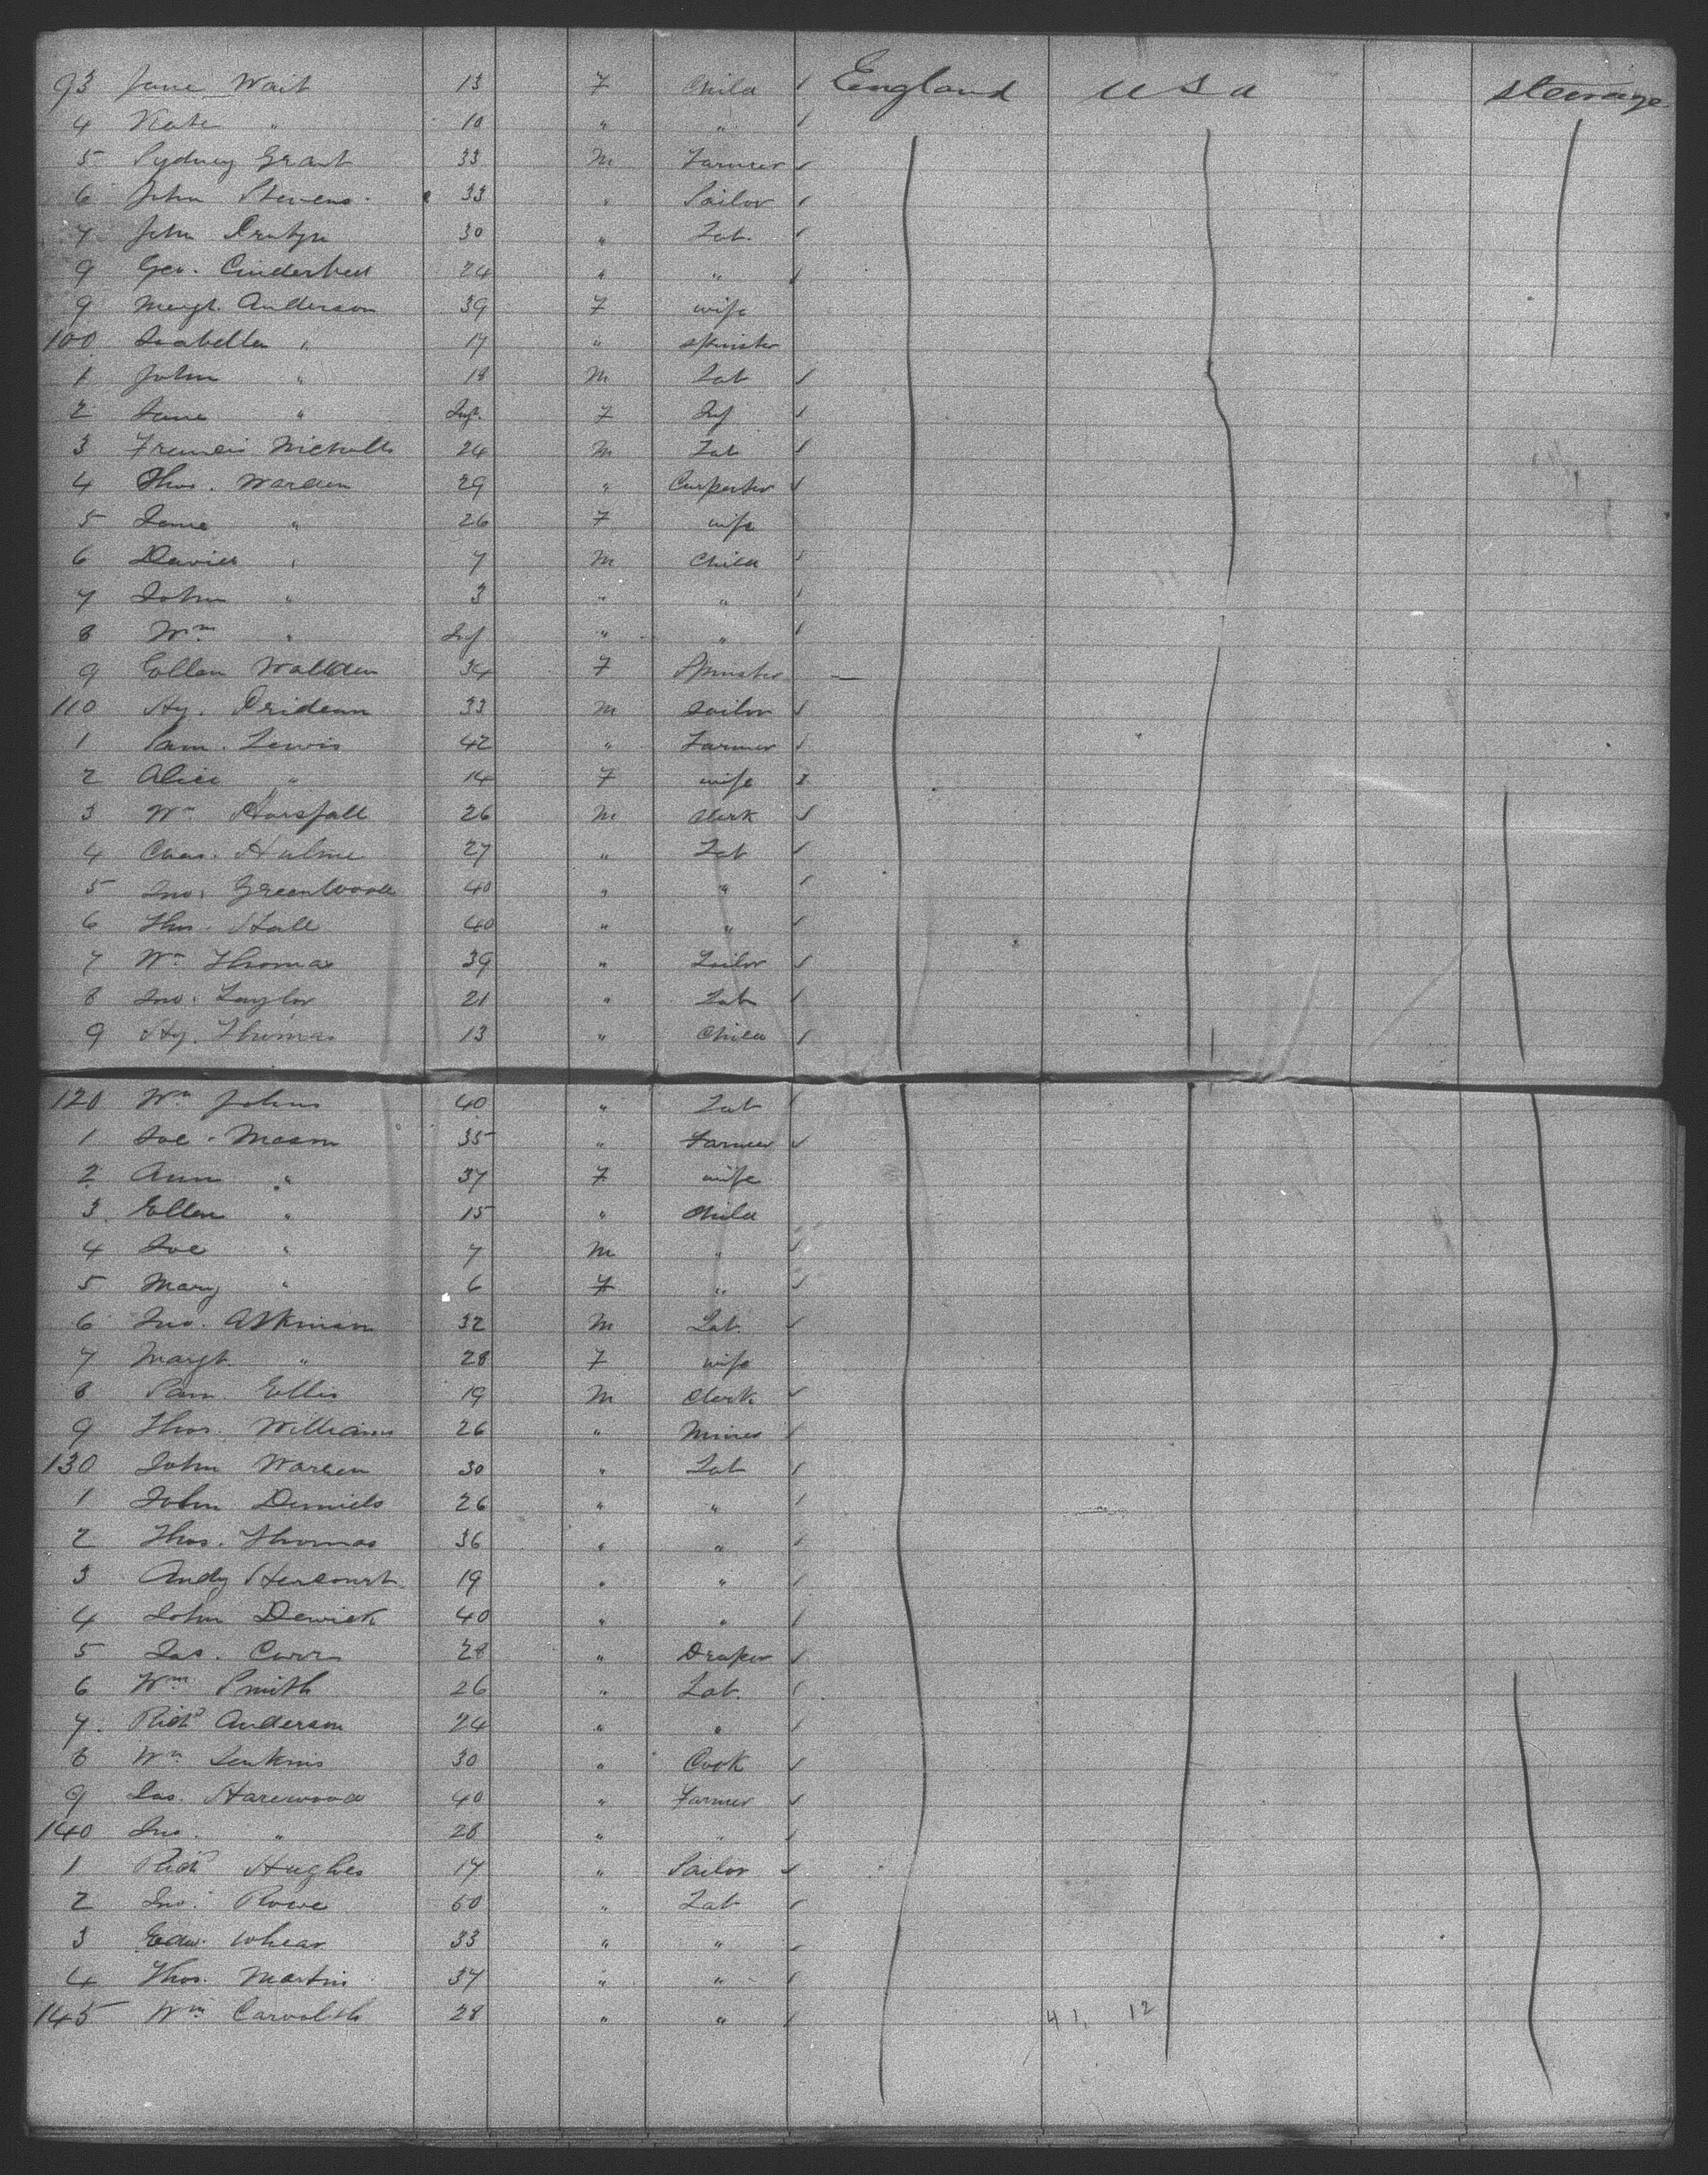 93 Jane Wait 13 F Child England USA Steerage
4 Kate " 10 " "
5 Sydney Grant 33 M Farmer
6 John Stevens 33 " Sailor
7 John 30 " Lab.
9 Geo. 24 " "
9 Margt. Anderson 39 F wife
100 Isabella " 17 " spinster
1 John " 18 M Lab
2 Jane " Inf. F Inf
3 Francis Nicholls 24 M Lab
4 Thos. Warden 29 " Carpenter
5 Jane " 26 F wife
6 David " 7 M Child
7 John " 3 " "
8 Wm " Inf " "
9 Ellen 34 F Spinster
110 Hy. Prideaux 33 M Sailor
1 Sam. Lewis 42 " Farmer
2 Alice " 14 F wife
3 Wm Horsfall 26 M Clerk
4 Chas. Hulme 27 " Lab
5 Jno. Greenwood 40 " "
6 Thos. Hall 40 " "
7 Wm Thomas 39 "
8 Jno. Taylor 21 " Lab
9 Hy. Thomas 13 " Child
120 Wm Johns 40 " Lab
1 Joe. Mason 35 " Farmer
2 Ann " 37 F wife
3 Ellen " 15 " Child
4 Joe " 7 M "
5 Mary " 6 F "
6 Jno. Atkinson 32 M Lab.
7 Margt. " 28 F wife
8 Sam. Ellis 19 M Clerk
9 Thos. Williams 26 " Miner
130 John Warren 30 " Lab
1 John Daniels 26 " "
2 Thos. Thomas 36 " "
3 Andy 19 " "
4 John Dewick 40 " "
5 Jas. Carr 28 " Draper
6 Wm Smith 26 " Lab.
7 Richd Anderson 24 " "
8 Wm Jenkins 30 " Cook
9 Jas. Harewood 40 " Farmer
140 Jno. " 28 " "
1 Richd Hughes 17 " Sailor
2 Jno. Rowe 60 " Lab
3 Edw. Whear 33 " "
4 Thos. Martin 37 " "
145 Wm Carvolth 28 " " 41. 12